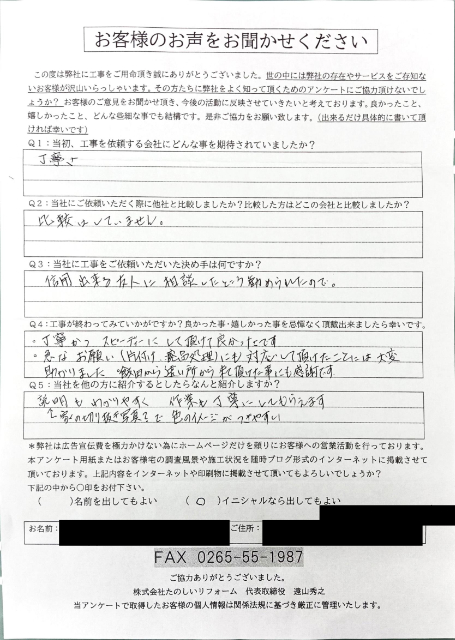 お客様のお声をお聞かせください
この度は弊社に工事をご用命頂き誠にありがとうございました。世の中には弊社の存在やサービスをご存知な
いお客様が沢山いらっしゃいます。その方たちに弊社をよく知って頂くためのアンケートにご協力頂けないでし
ょうか？ お客様のご意見をお聞かせ頂き、今後の活動に反映させていきたいと考えております。良かったこと、
嬉しかったこと、どんな些細な事でも結構です。是非ご協力をお願い致します。（出来るだけ具体的に書いて頂
ければ幸いです）
Q1：当初、工事を依頼する会社にどんな事を期待されていましたか？
丁寧さ
Q2：当社にご依頼いただく際に他社と比較しましたか？比較した方はどこの会社と比較しましたか？
比較はしていません。
Q3：当社に工事をご依頼いただいた決め手は何ですか？
信用出来る友人に相談したところ勧められたので。
Q4：工事が終わってみていかがですか？良かった事・嬉しかった事を忌憚なく頂戴出来ましたら幸いです。
・丁寧かつ スピーディーにして頂けて良かったです
・急なお願い（片付け、廃品処理）にも対応して頂けたことには大変
助かりました 飯田から遠い所から来て頂けた事にも感謝です
Q5：当社を他の方に紹介するとしたらなんと紹介しますか？
説明もわかりやすく 作業も丁寧にしてもらえます
写真 で色のイメージがつきやすい
＊弊社は広告宣伝費を極力かけない為にホームページだけを頼りにお客様への営業活動を行っております。
本アンケート用紙またはお客様宅の調査風景や施工状況を随時ブログ形式のインターネットに掲載させて
頂いております。上記内容をインターネットや印刷物に掲載させて頂いてもよろしいでしょうか？
下記の中から〇印をお付下さい。
（ ）名前を出してもよい （ ○ ）イニシャルなら出してもよい
お名前： ご住所：
FAX 0265-55-1987
ご協力ありがとうございました。
株式会社たのしいリフォーム 代表取締役 遠山秀之
当アンケートで取得したお客様の個人情報は関係法規に基づき厳正に管理いたします。